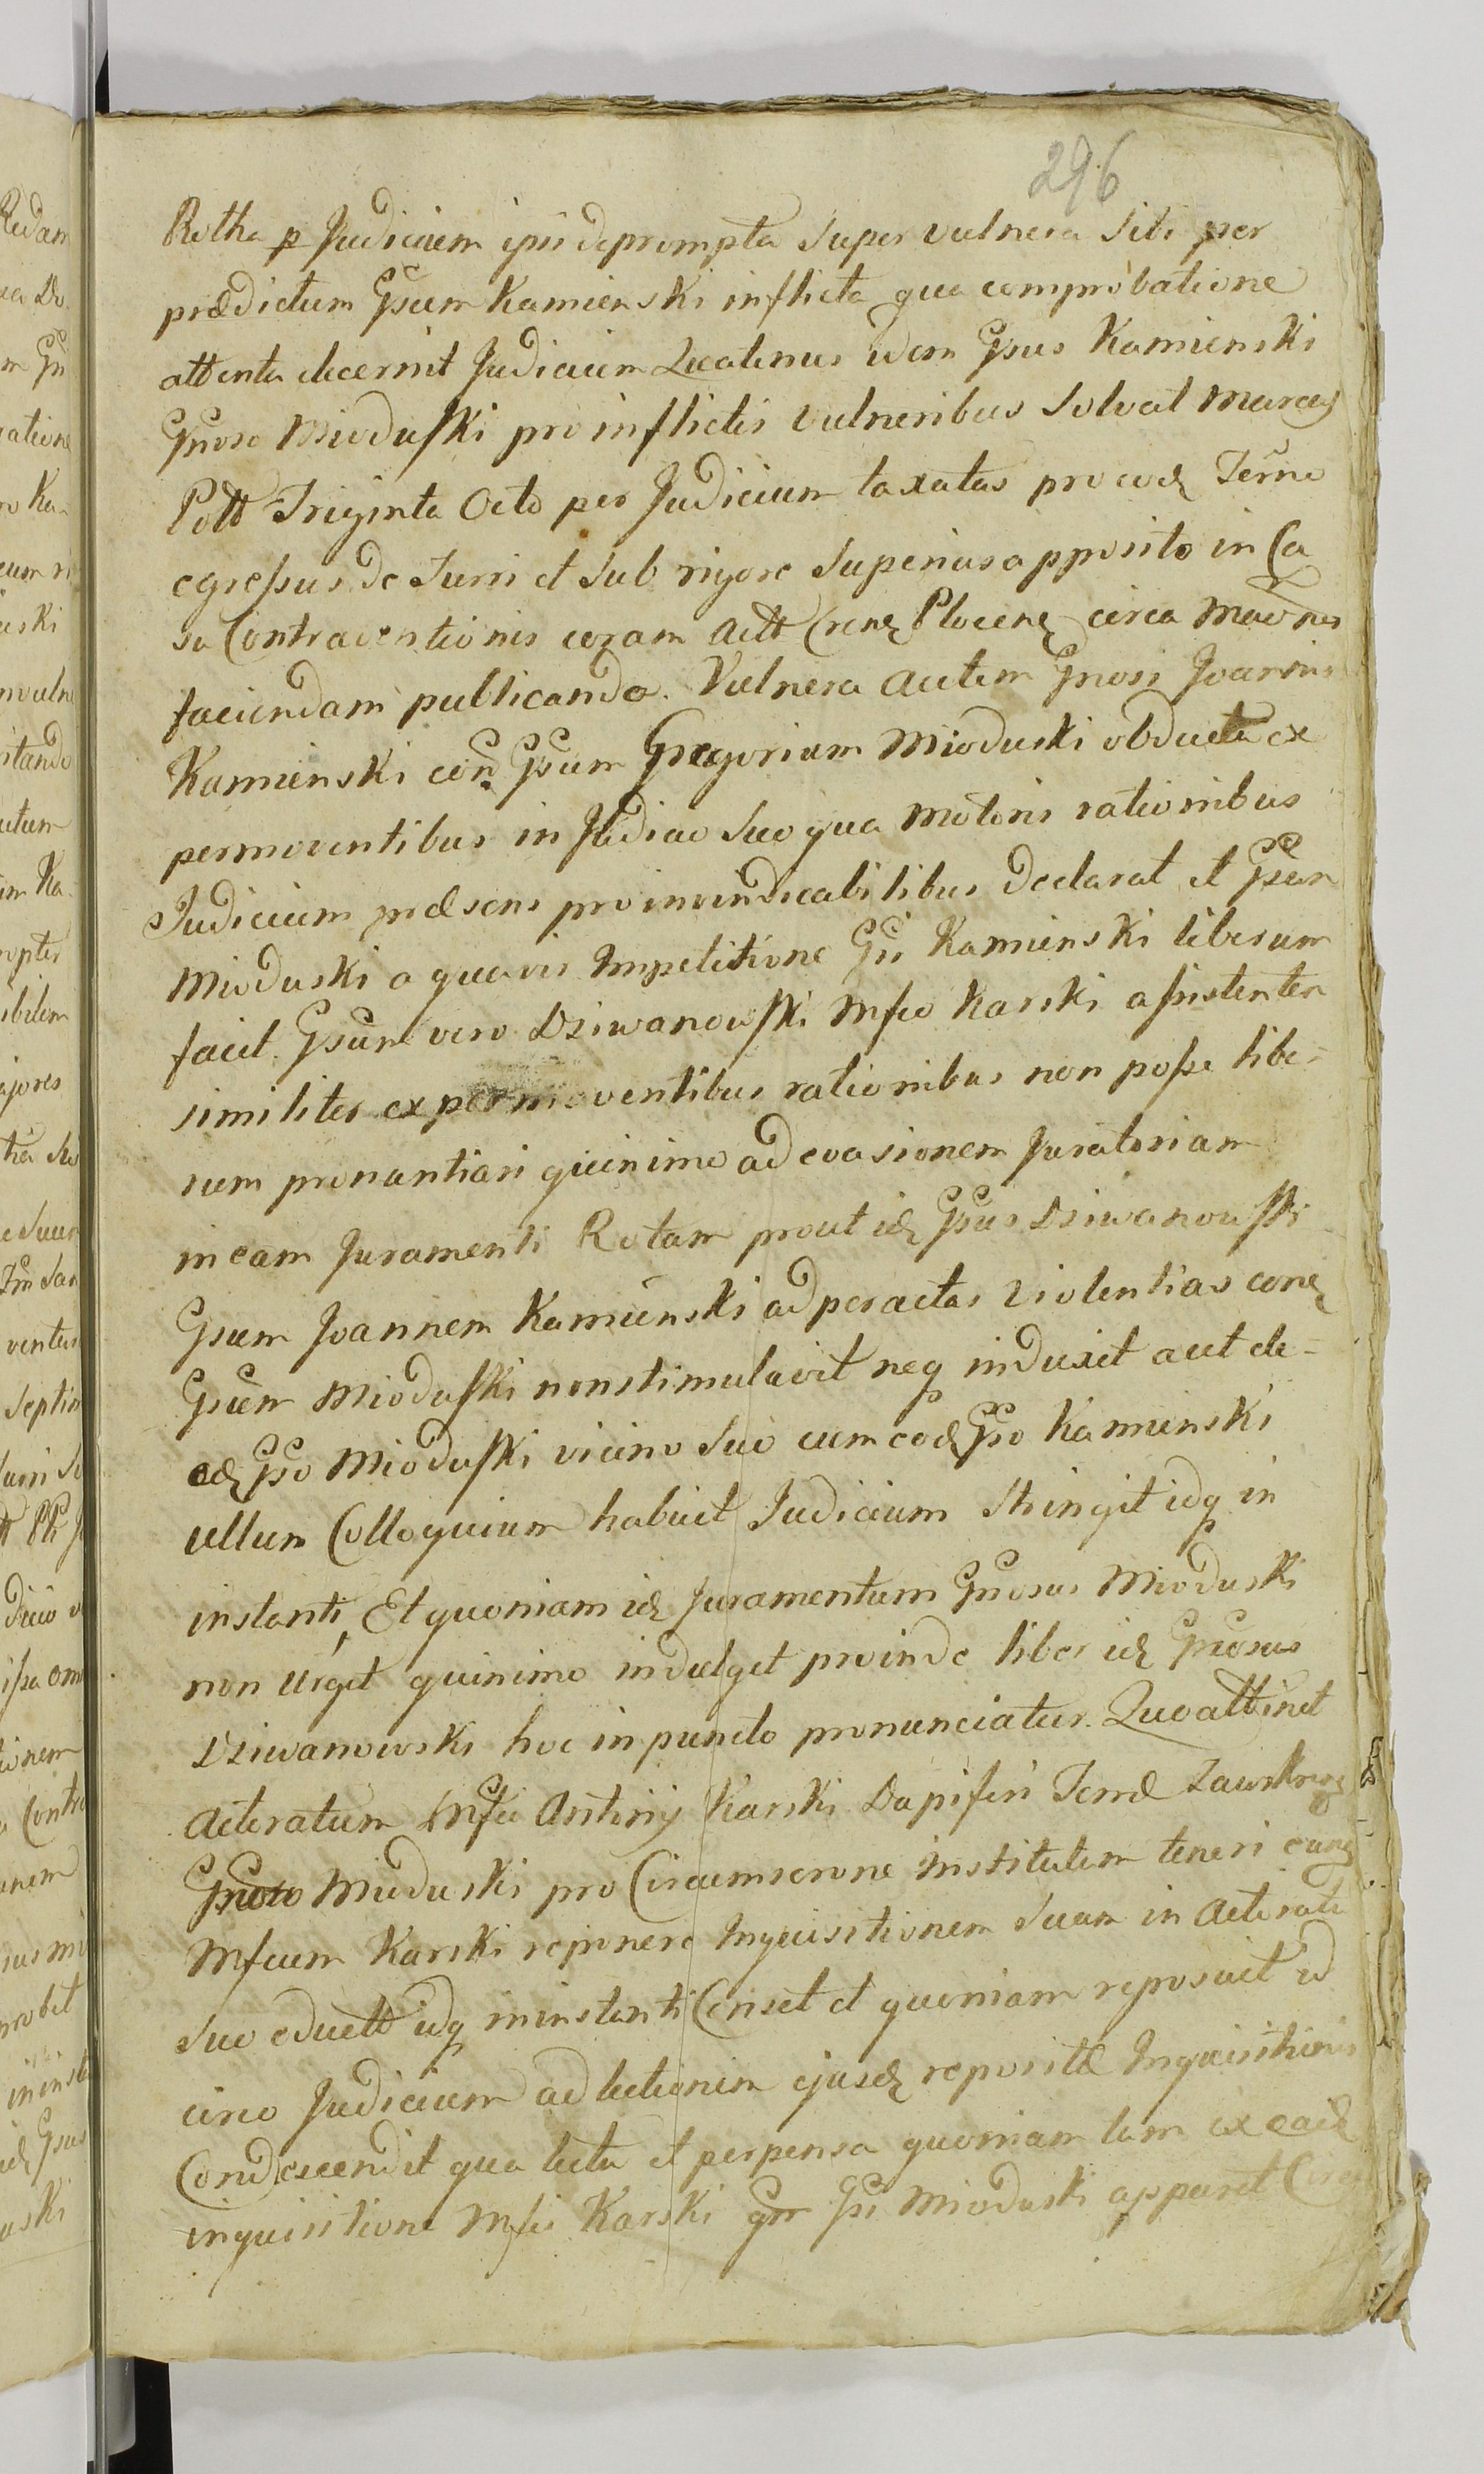 296
Rotha p Judicium ipsi deprompta super vulnera sibi per
prædictum Gsum Kamienski inflicta qua comprobatione
attenta decernit Judicium Quatenus idem Gsus Kamienski
Gnoso Mioduski pro inflictis vulneribus solvat Marcas
Poll Triginta Octo per Judicium taxatas pro eod Termo
egressus de Turri et sub rigore superius apposito in Ca
su Contraventionis coram Actt Crens Plocens circa
faciendam publicanda. Vulnera autem Gnosi Joannis
Kamienski con Gsum Gregorium Mioduski obducta ex
permoventibus in Judicio suo qua motoris rationibus
Judicium præsens pro invindicabilibus declarat et Gsum
Mioduski a quavis Impetitione Gsi Kamienski liberum
facit. Gsum vero Dziwanowski Mfco Karski assistentem
similiter ex permoventibus rationibus non posse libe=
rum pronuntiari quinimo ad evasionem Juratoriam
in eam Juramenti Rotam prout id Gsus Dziwanowski
Gsum Joannem Kamienski ad peractas violentias con
Gsum Mioduski non stimulavit neq induxit aut de=
ed Gso Mioduski vicino suo cum eod Gso Kamienski
ullum Colloquium habuit Judicium stringit idq in
instanti, Et quoniam id Juramentum Gnosus Mioduski
non urget quinimo indulget proinde liber id Gnosus
Dziwanowski hoc in puncto pronunciatur. Quo attinet
Actoratum Mfci Antonij Karski Dapiferi Terræ Zawskren
Gnoso Mioduski pro Circumscrone Institutum teneri eund
Mfcum Karski reponere Inquisitionem suam in Actoratu
suo eductt idq in instanti Censet et quoniam reposuit id
circo Judicium ad lectionem ejusd repositæ Inquisitionis
Condescendit qua lecta et perpensa quoniam tam ex ead
inquisitione Mfci Karski qm Gsi Mioduski apparet